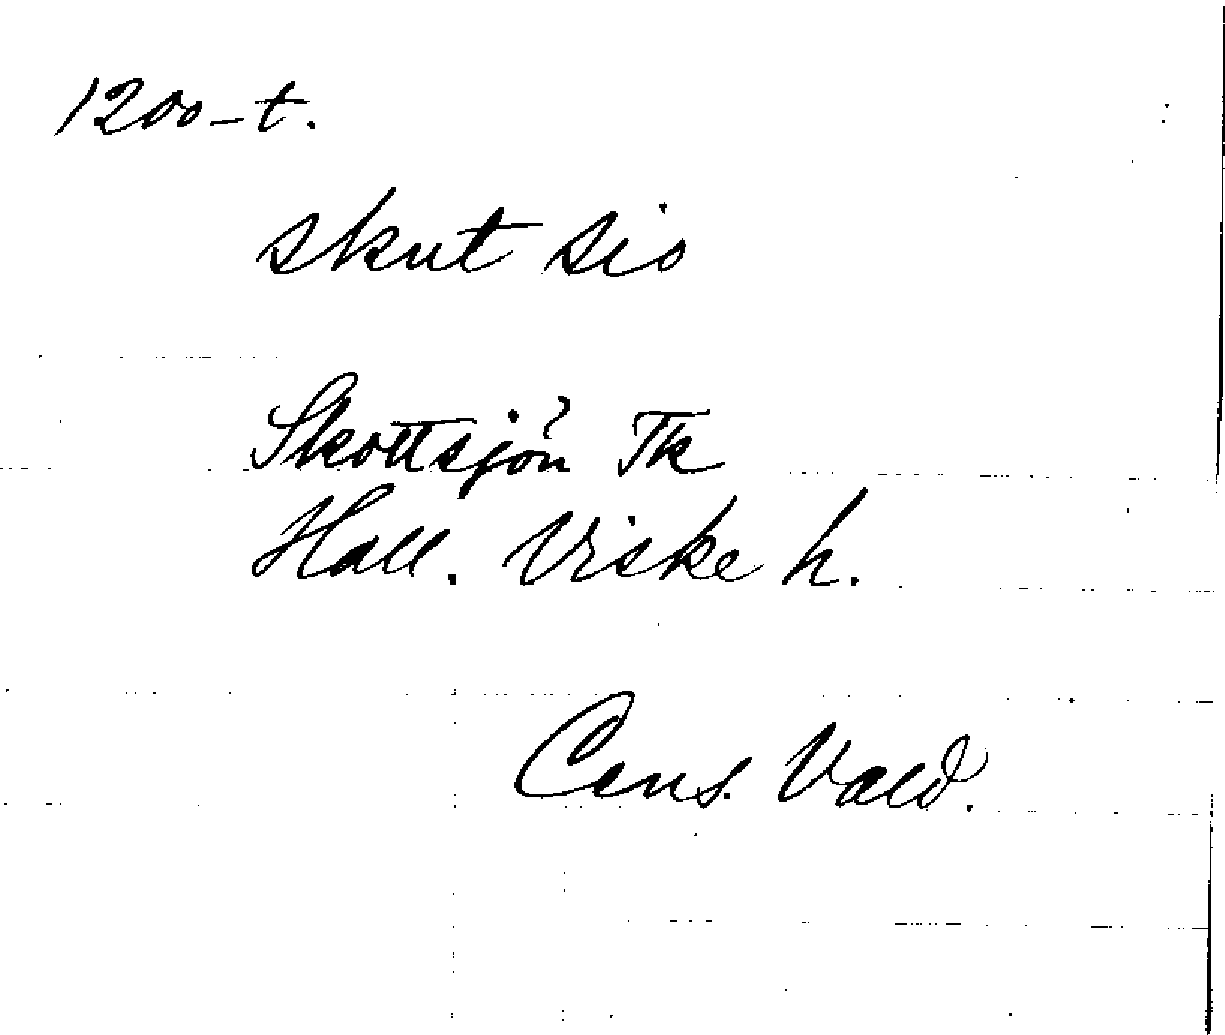 1200-t.
skut sio
Skottsjön Tk
Hall. Viske h.
Cens. Vald.